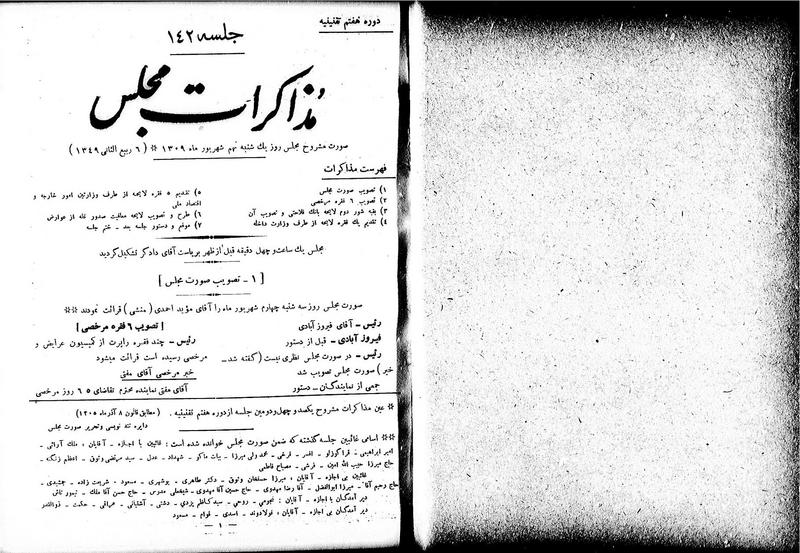 دوره هفتم تقنینیه
جلسه ۱۴۲
مذاکرات مجلس
صورت مشروح مجلس روز یك شنبه نهم شهریور ماه ۱۳۰۹ * ( ۶ ربیع الثانی ۱۳۴۹ )
فهرست مذاکرات
۱) تصویب صورت مجلس
۲) تصویب ۶ فقره مرخصی
۳) بقیه شور دوم لایحه بانك فلاحتی و تصویب آن
۴) تقدیم یك فقره لایحه از طرف وزارت داخله
۵) تقدیم ۵ فقره لایحه از طرف وزارتین امور خارجه و
اقتصاد ملی
۶) طرح و تصویب لایحه معافیت صدور غله از عوارض
۷) موقع و دستور جلسه بعد - ختم جلسه
مجلس یك ساعت و چهل دقیقه قبل از ظهر بریاست آقای دادگر تشکیل گردید
[ ۱ - تصویب صورت مجلس ]
صورت مجلس روز سه شنبه چهارم شهریور ماه را آقای مؤید احمدی ( منشی ) قرائت نمودند **
رئیس - آقای فیروز آبادی
فیروز آبادی - قبل از دستور
رئیس - در صورت مجلس نظری نیست ( گفته شد -
خیر ) صورت مجلس تصویب شد
جمعی از نمایندگان - دستور
[ تصویب ۶ فقره مرخصی ]
رئیس - چند فقره راپرت از کمیسیون عرایض و
مرخصی رسیده است قرائت میشود
خبر مرخصی آقای مفتی
آقای مفتی نماینده محترم تقاضای ۶۵ روز مرخصی
* عین مذاکرات مشروح یکصد و چهل و دومین جلسه از دوره هفتم تقنینیه . ( مطابق قانون ۸ آذر ماه ۱۳۰۵ )
دایره تند نویسی و تحریر صورت مجلس
** اسامی غائبین جلسه گذشته که ضمن صورت مجلس خوانده شده است : غائبین با اجازه - آقایان : ملك آرائی -
امیر ابراهیمی - قراگوزلو - افسر - فرخی - محمد ولی میرزا - بیات ماکو - شهداد - عدل - سید مرتضی وثوق - اعظم زنگنه -
حاج میرزا حبیب الله امین - فرشی - مصباح فاطمی
غائبین بی اجازه - آقایان : میرزا حسنخان وثوق - دکتر طاهری - بوشهری - مسعود - شریعت زاده - جمشیدی -
حاج رحیم آقا - میرزا ابوالفضل - آقا رضا مهدوی - حاج حسین آقا مهدوی - شیخعلی مدرس - حاج حسن آقا ملك - تیمور تاش
دیر آمدگان با اجازه - آقایان : نجومی - روحی - سید کاظم یزدی - دشتی - آشتیانی - عراقی - حکمت - ذوالقدر
دیر آمدگان بی اجازه - آقایان : فولادوند - اسدی - قوام - مسعود
- ۱ -